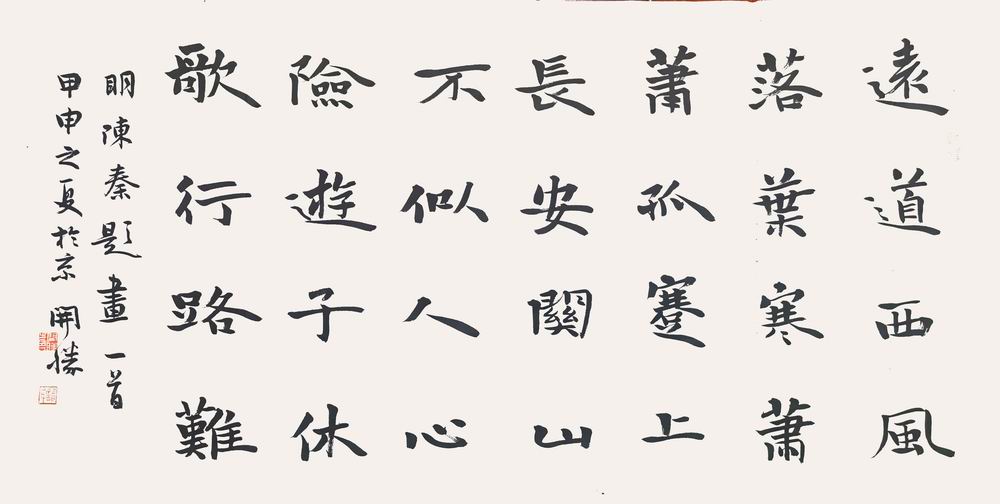 遠道西風
落葉寒蕭
蕭孤蹇上
長安關山
不似人心
險遊子休
歌行路難
明陳秦題畫一首
甲申之夏於京開勝